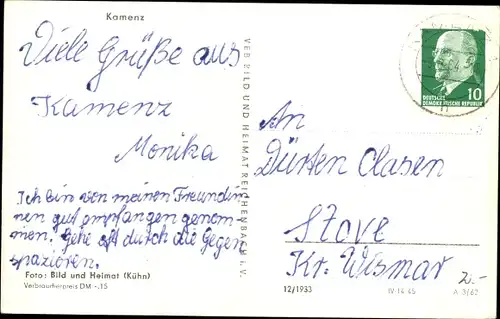 Kamenz
Viele Grüße aus
Kamenz
Monika
Ich bin von meinen Freundin
nen gut empfangen genom
men. Gehe oft durch die Gegen
spazieren.
Foto: Bild und Heimat (Kühn)
Verbraucherpreis DM -.15
VEB BILD UND HEIMAT REICHENBACH i. V.
10
DEUTSCHE
DEMOKRATISCHE REPUBLIK
An
Dürten Clasen
Stove
Kr. Wismar
12/1933
IV-14-45
A 3/62
2.-